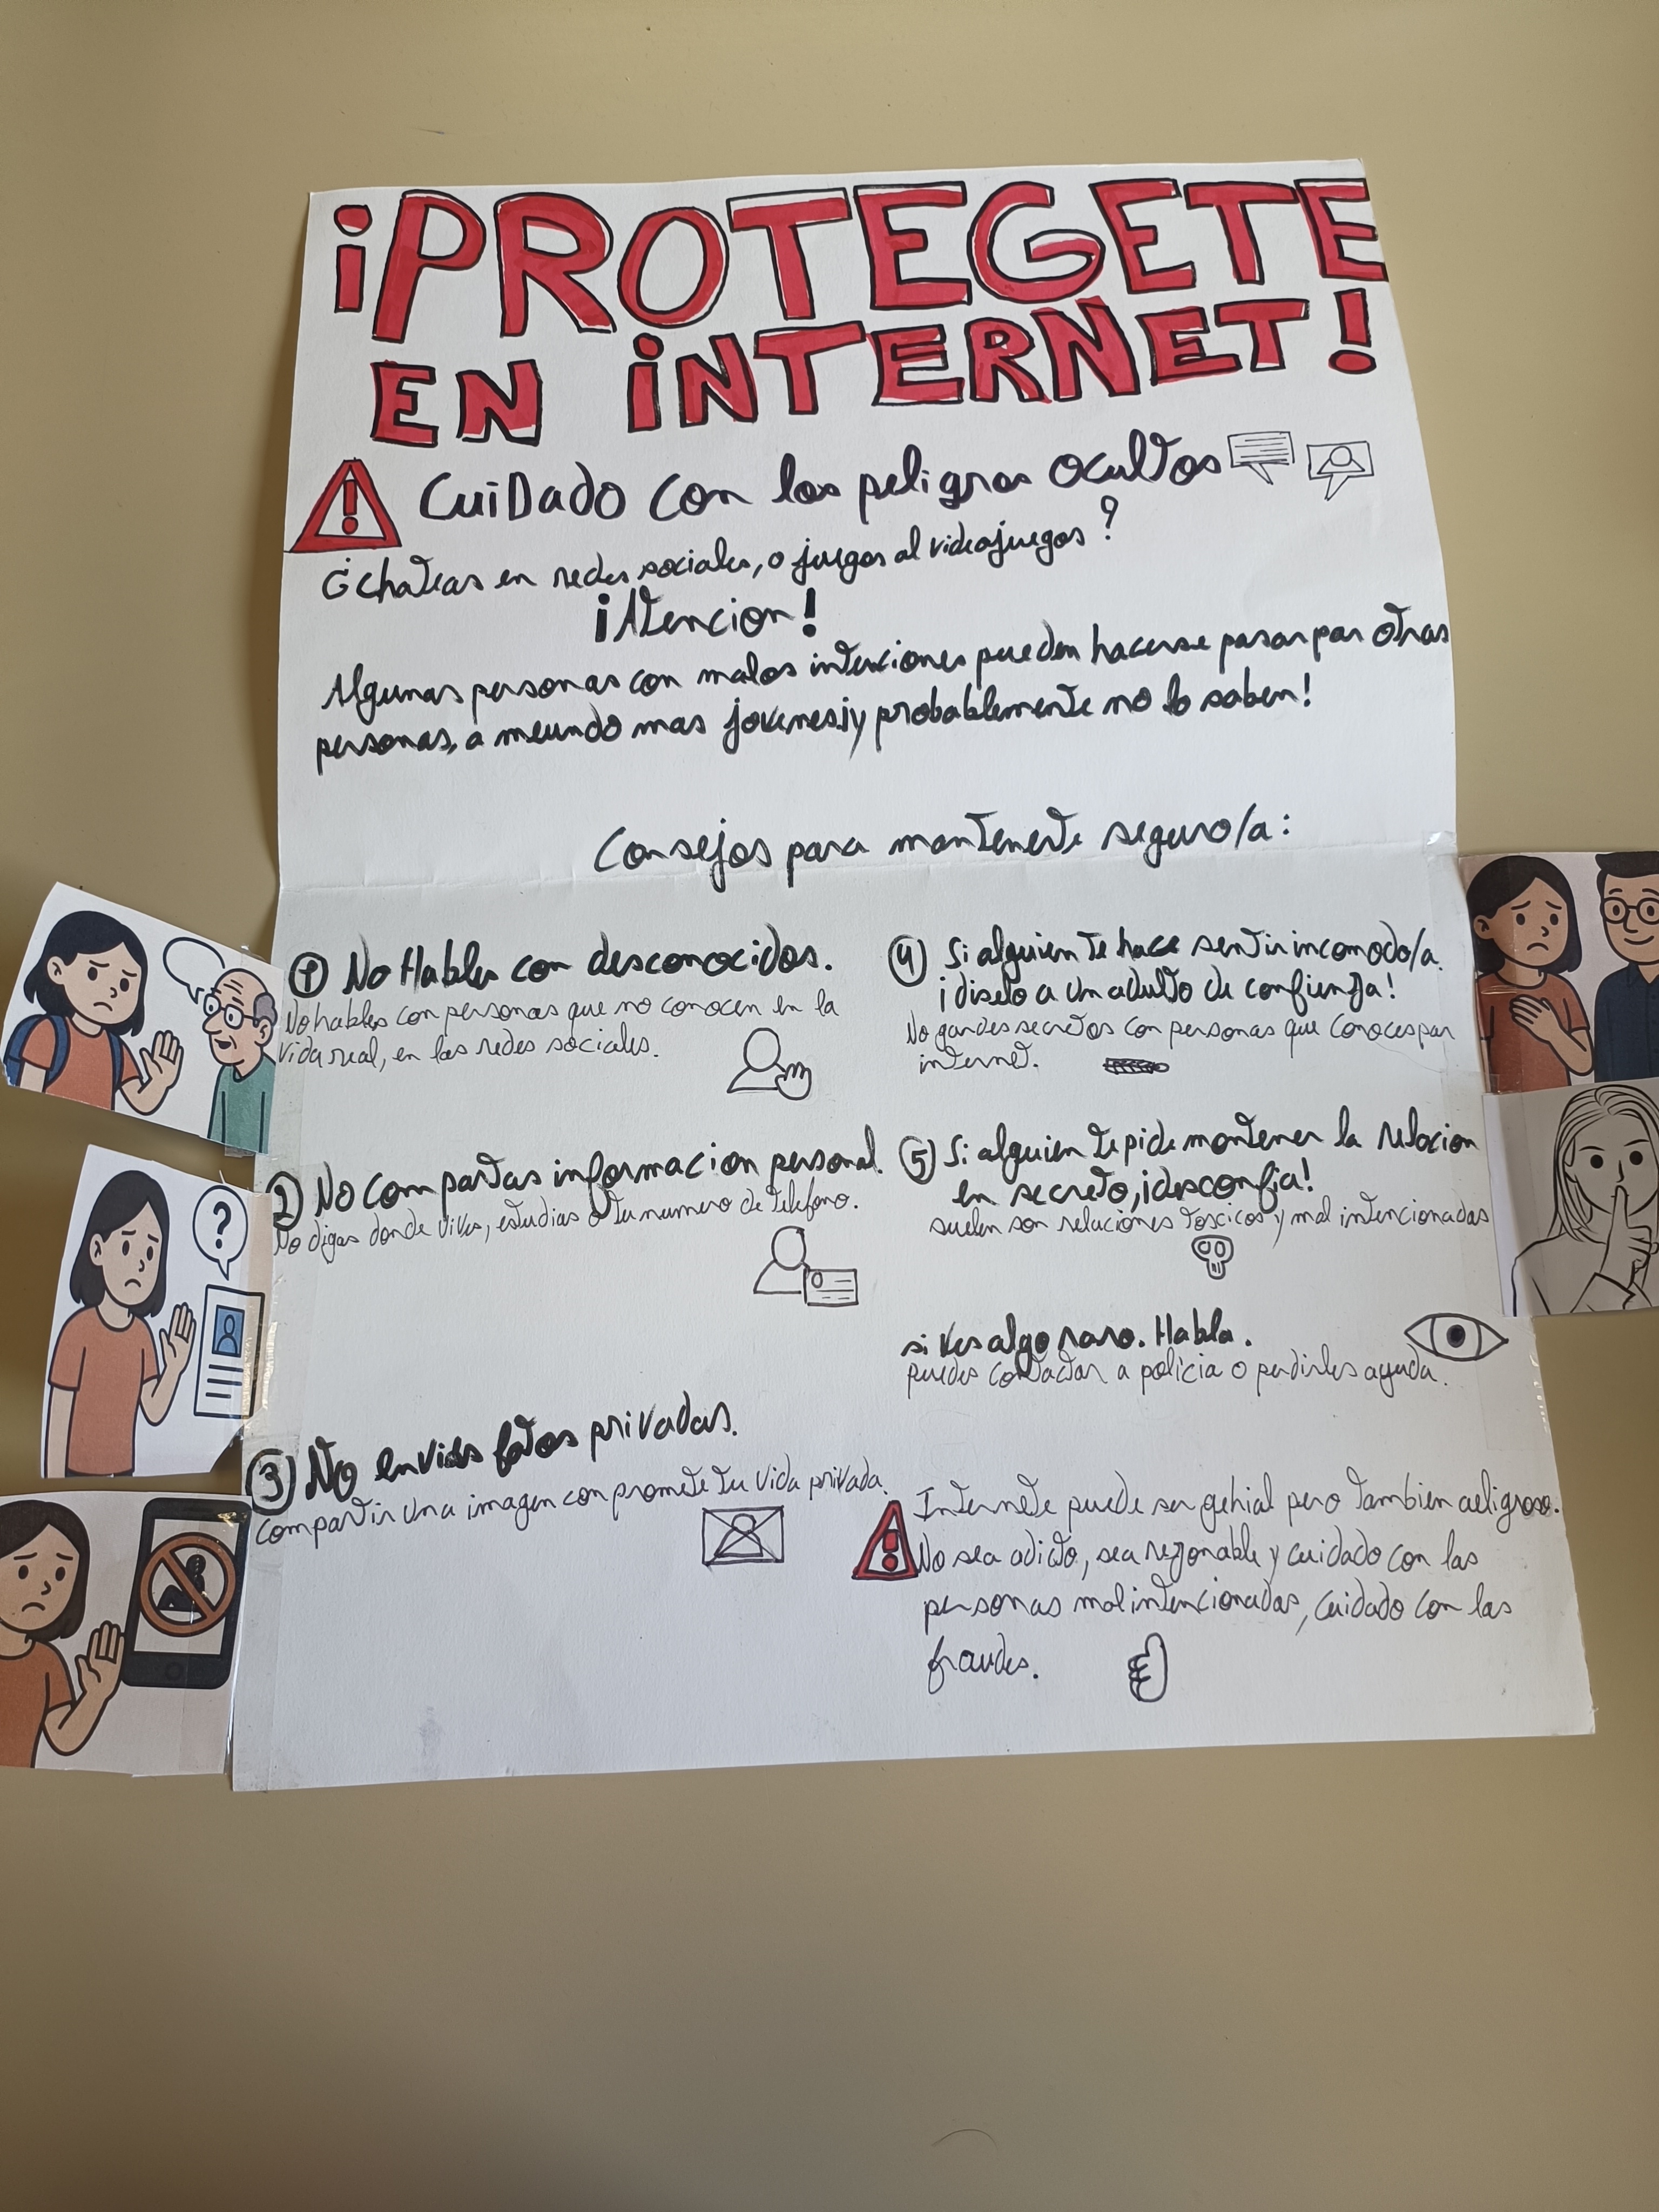 ¡PROTEGETE
EN INTERNET!
Cuidado con los peligros ocultos
¿chateas en redes sociales, o juegas al videojuegos?
¡Atencion!
Algunas personas con malas intenciones pueden hacerse pasar por otras
personas, a meundo mas jovenes.¡y probablemente no lo saben!
Consejos para mantenerte seguro/a:
1 No Hables con desconocidos.
No hables con personas que no conocen en la
vida real, en las redes sociales.
2 No compartas informacion personal.
No digas donde vives, estudias o tu numero de telefono.
?
3 No envies fotos privadas.
compartir una imagen compromete tu vida privada.
4 Si alguien te hace sentir incomodo/a.
¡diselo a un adulto de confienza!
No gardes secretos con personas que conoces por
internet.
5 Si alguien te pide mantener la relacion
en secreto, ¡desconfia!
suelen son relaciones toscicos y mal intencionadas
si ves algo raro. Habla.
puedes contactar a policia o perdirles ayuda.
Internete puede ser genial pero tambien peligroso.
No sea adicto, sea rezonable y cuidado con las
personas mal intencionadas, cuidado con las
fraudes.